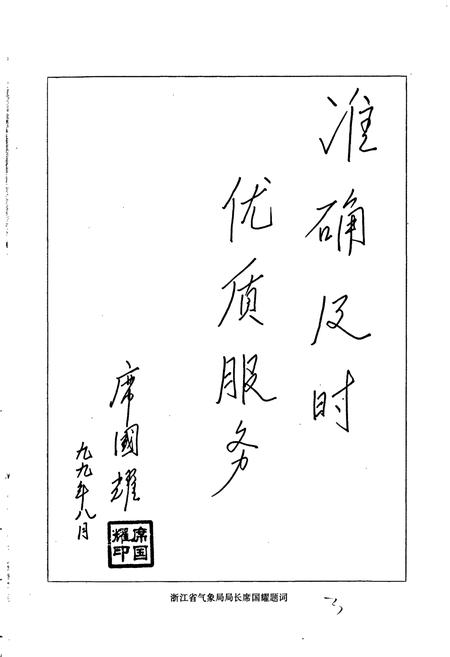 准确及时
优质服务
席國耀
九九年八月
席国
耀印
浙江省气象局局长席国耀题词